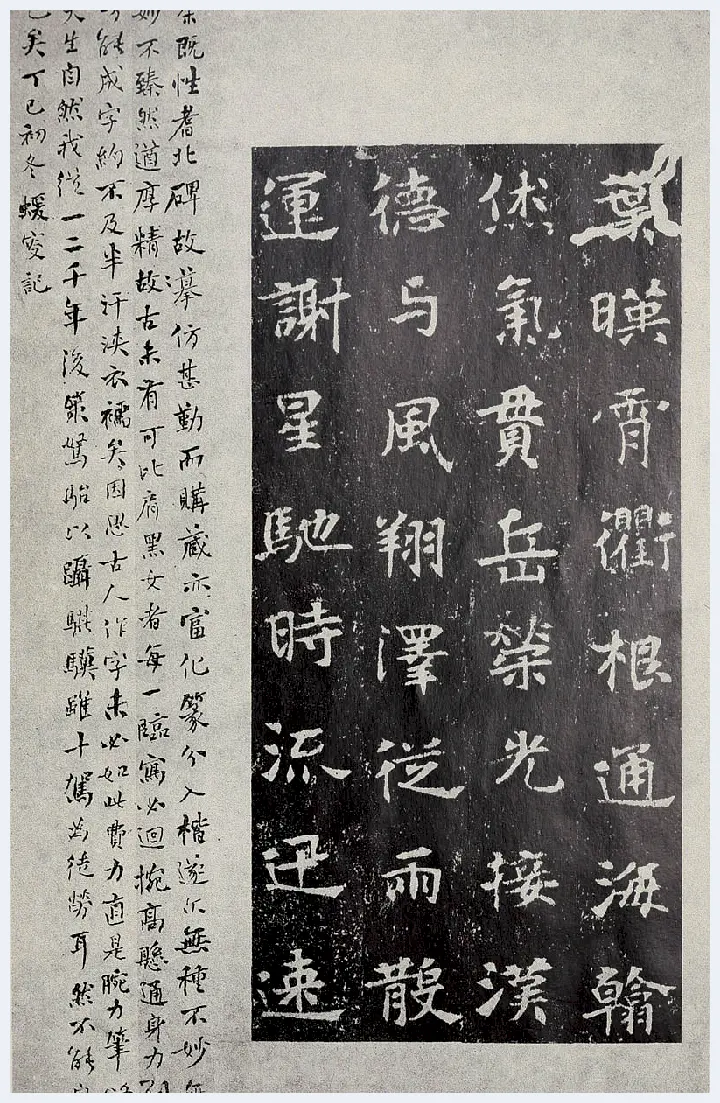 葉暎霄衢根通海翰
休氣貫岳榮光接漢
德与風翔澤從雨散
運謝星馳時流迅速
余既性耆北碑故摹仿甚勤而購藏亦富化篆分入楷遂尒無種不妙無
妙不臻然遒厚精故古未有可比肩黑女者每一臨寫必迴捥高懸通身力到
能成字約不及半汗浹衣襦矣因思古人作字未必如此費力直是腕力筆
天生自然我從一二千年後策駑駘以躡騏驥雖十駕為徒勞耳然不能
已矣丁巳初冬蝯叟記